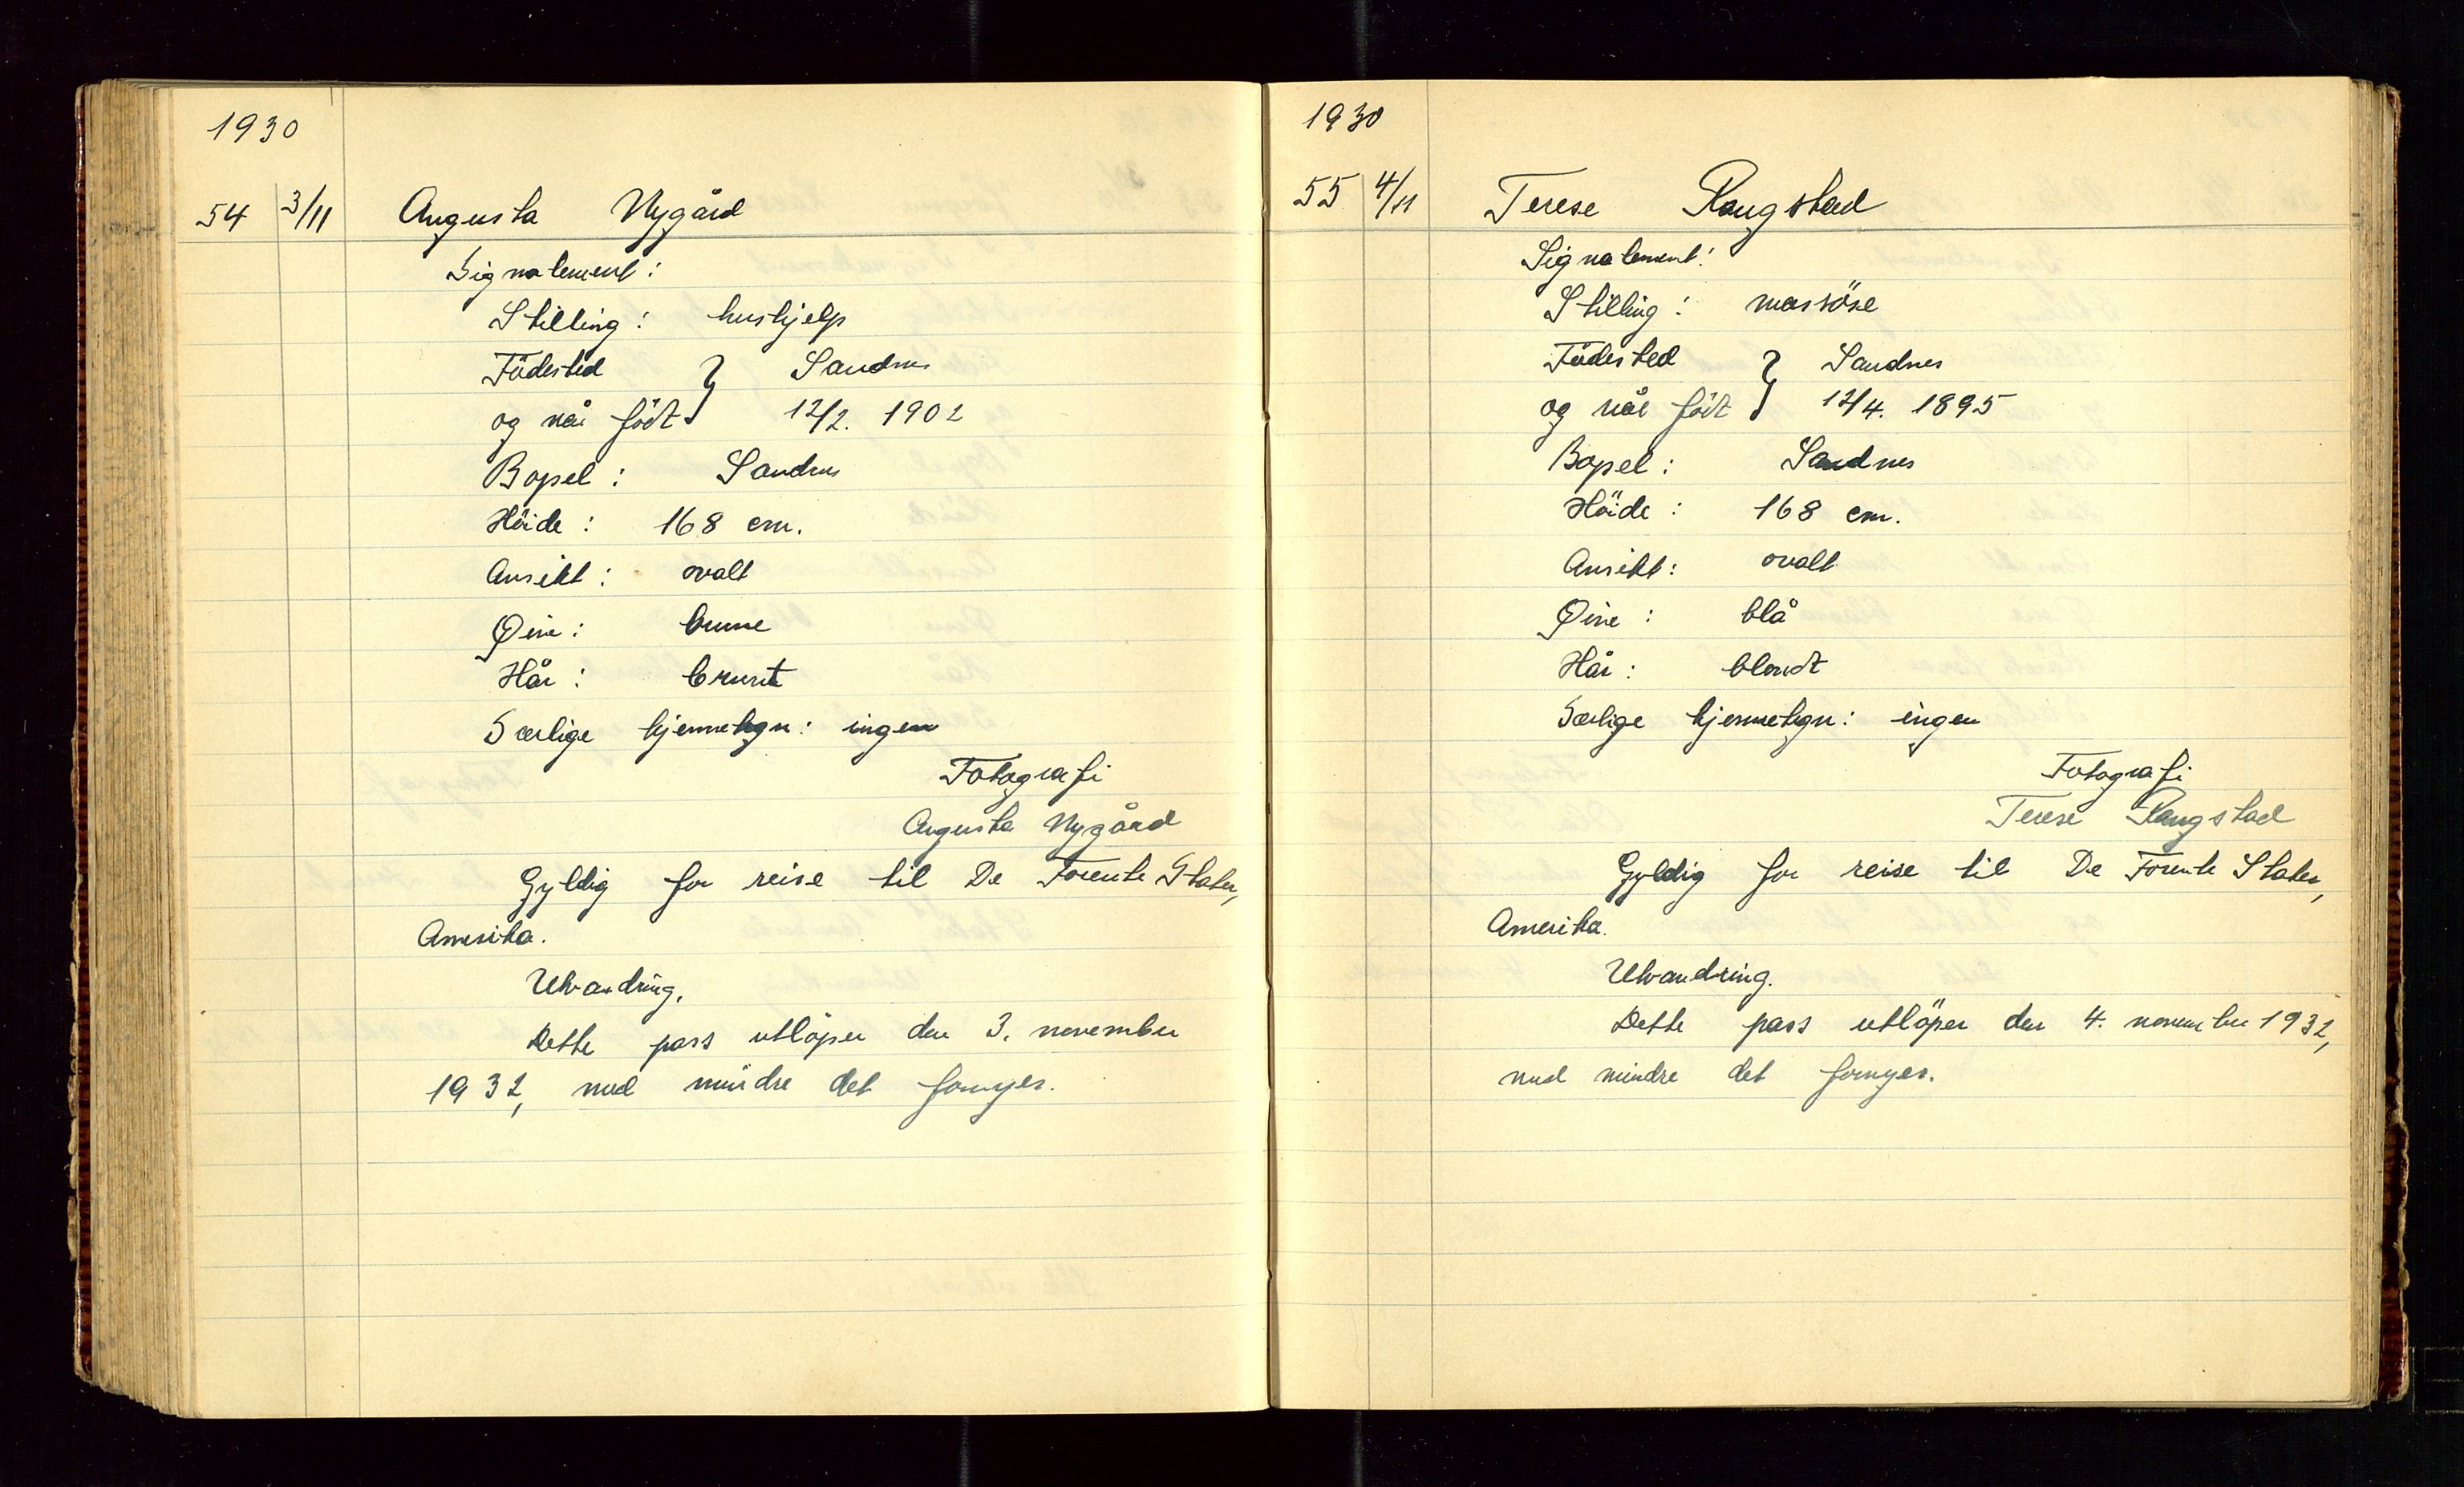 1930
54 3/11 Augusta Nygård
Signalement:
Stilling: hushjelp
Födested } Sandnes
og når födt } 12/2. 1902
Bopel: Sandnes
Höide: 168 cm.
Ansikt: ovalt
Øine: brune
Hår: brunt
Særlige kjennetegn: ingen
Fotografi
Augusta Nygård
Gyldig for reise til De Forente Stater,
Amerika.
Utvandring.
Dette pass utlöper den 3. november
1932, med mindre det fornyes.
1930
55 4/11 Terese Raugstad
Signalement:
Stilling: massöse
Födested } Sandnes
og når födt } 12/4. 1895
Bopel: Sandnes
Höide: 168 cm.
Ansikt: ovalt
Øine: blå
Hår: blondt
Særlige kjennetegn: ingen
Fotografi
Terese Raugstad
Gyldig for reise til De Forente Stater,
Amerika.
Utvandring.
Dette pass utlöper den 4. november 1932,
med mindre det fornyes.